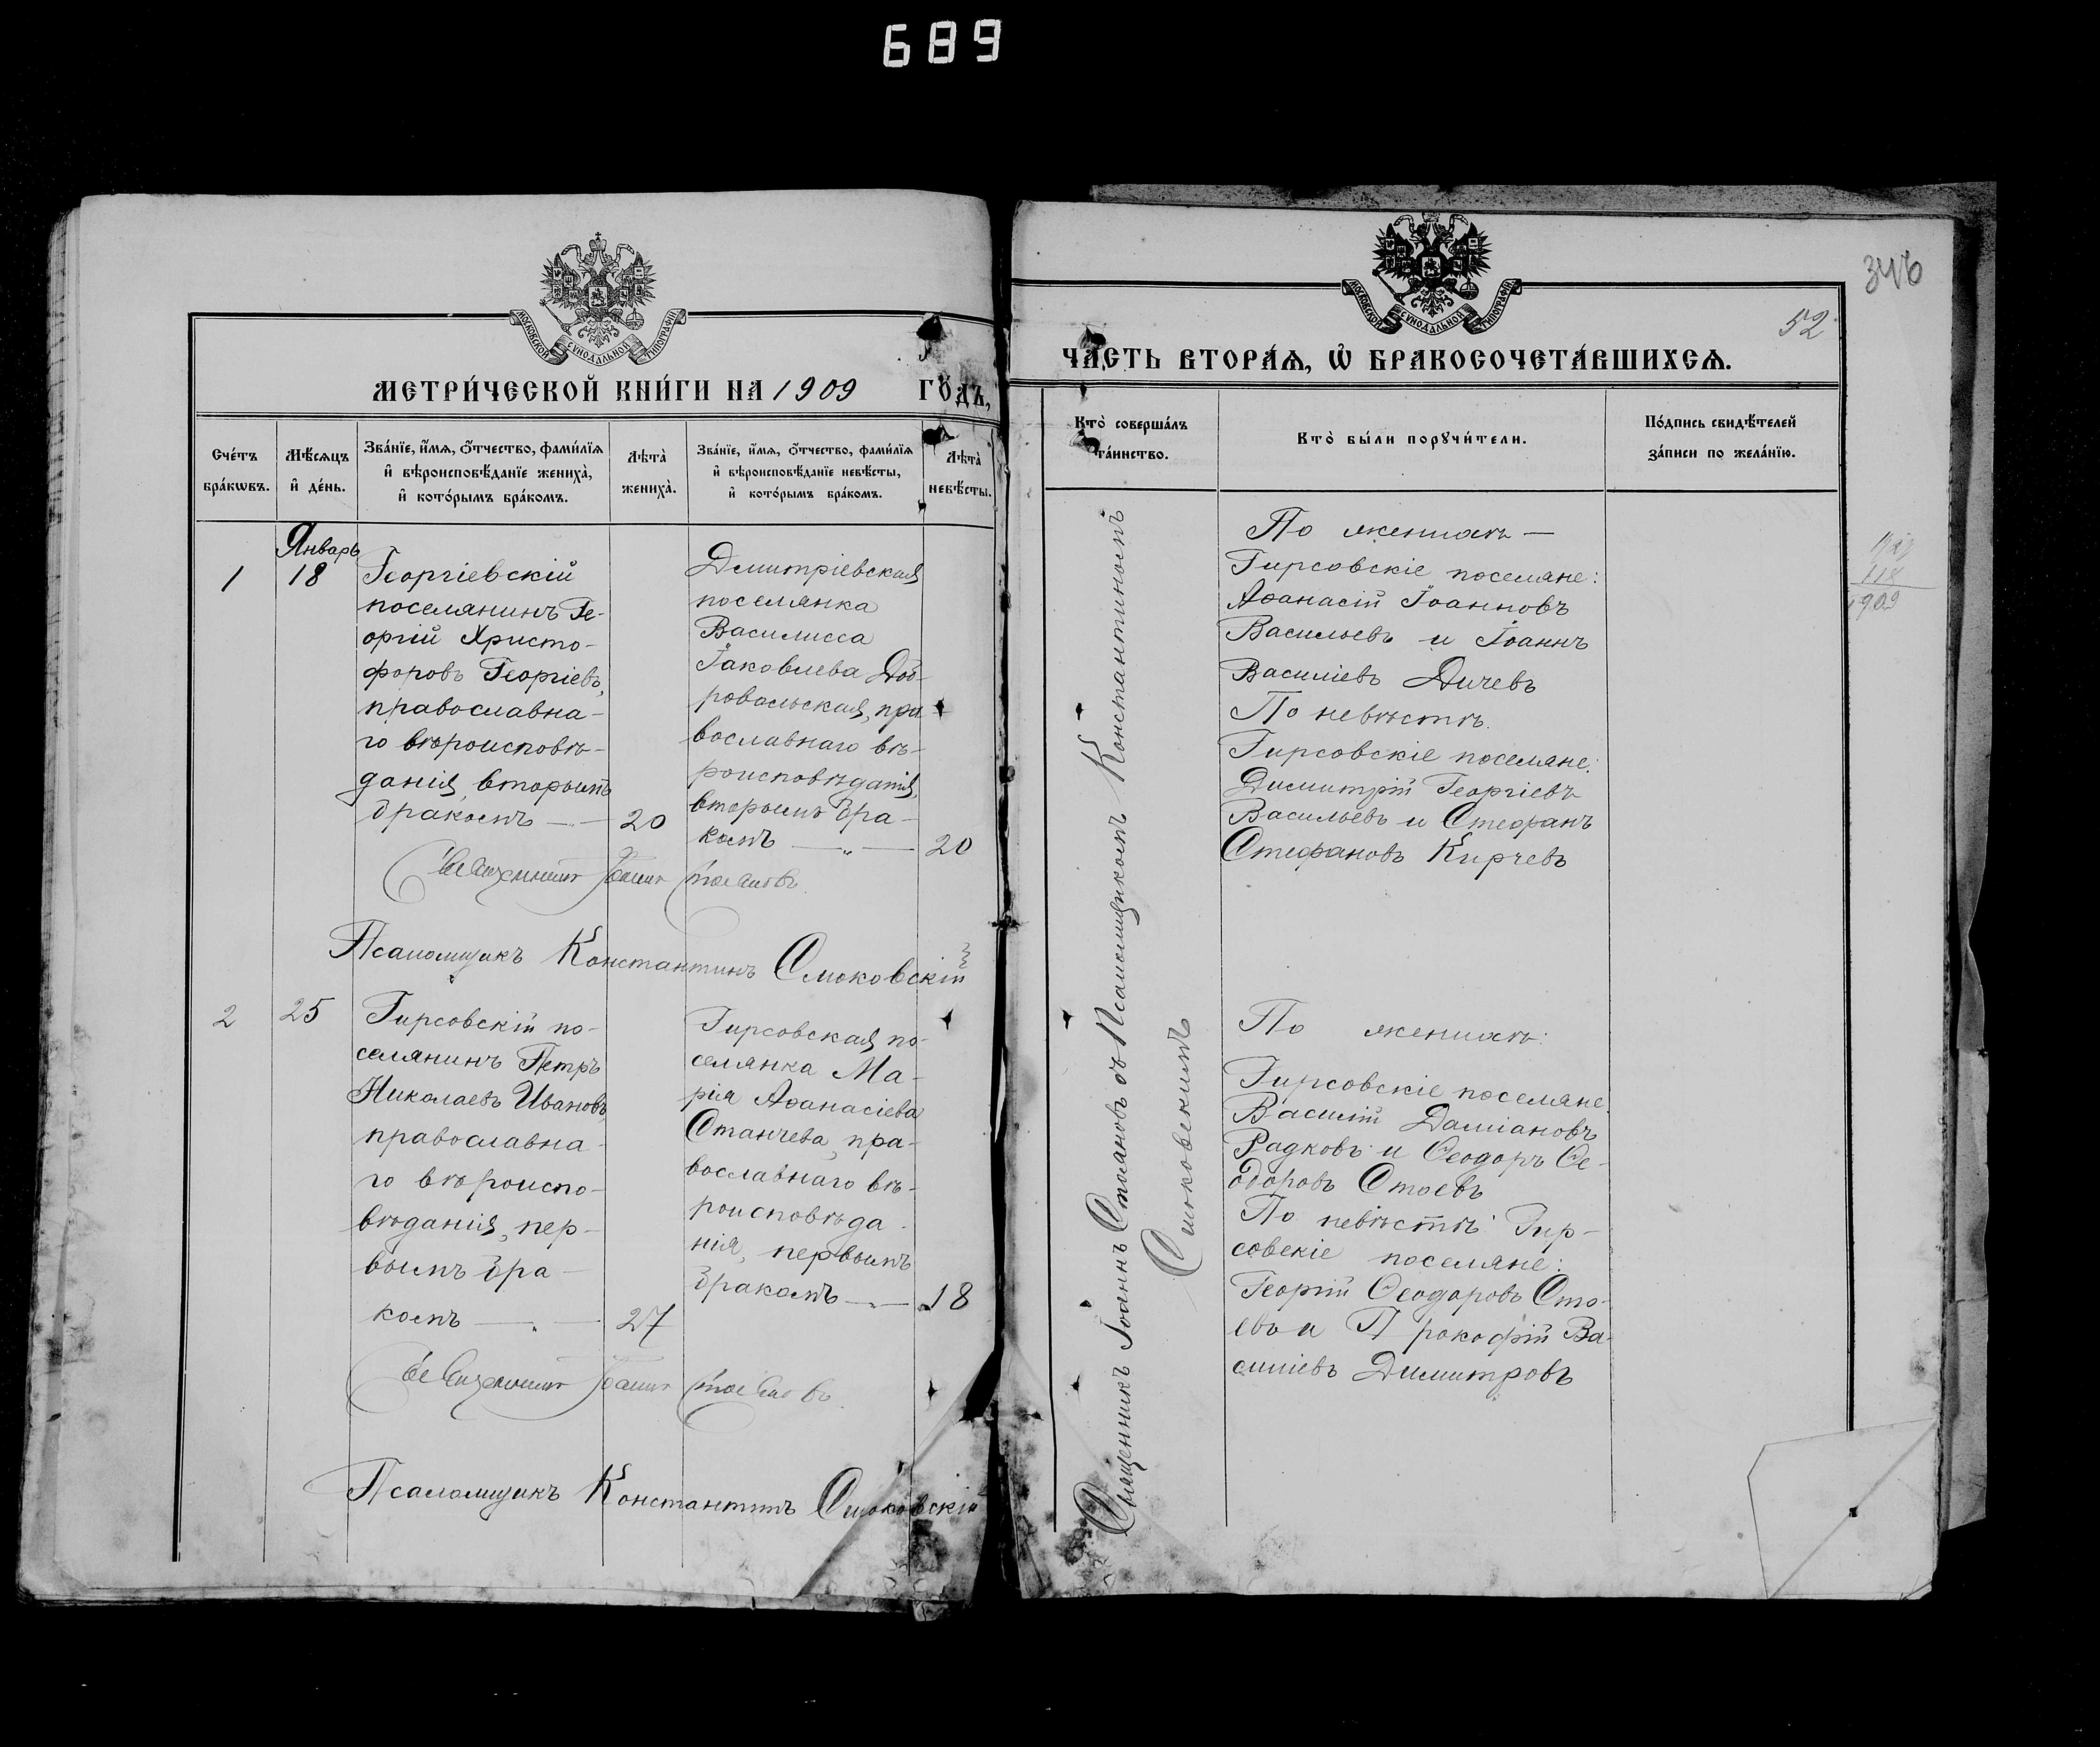 689
МОСКОВСКОЙ СѴНОДАЛЬНОЙ ТИПОГРАФІИ
МЕТРИ́ЧЕСКОЙ КНИ́ГИ НА 1909 ГО́ДЪ,
Сче́тъ бра́кѡвъ.
Мѣ́сяцъ и҆ де́нь.
Зва́нїе, и҆́мѧ, ѻ҆́тчество, фами́лїѧ
и҆ вѣроисповѣ́данїе жениха̀,
и҆ кото́рымъ бра́комъ.
Лѣта̀ жениха̀.
Зва́нїе, и҆́мѧ, ѻ҆́тчество, фами́лїѧ
и҆ вѣроисповѣ́данїе невѣ́сты,
и҆ кото́рымъ бра́комъ.
Лѣта̀ невѣ́сты.
1
Январь
18
Георгіевскій
поселянинъ Ге-
оргій Христо-
форовъ Георгіевъ,
православна-
го вѣроисповѣ-
данія, вторымъ
бракомъ —
20
Димитріевская
поселянка
Василисса
Іаковлева Доб-
ровольская, пра-
вославнаго вѣ-
роисповѣданія,
вторымъ бра-
комъ — „ —
20
Священникъ Іоаннъ Стояновъ
Псаломщикъ Константинъ Смоковскій
2
25
Гирсовскій по-
селянинъ Петръ
Николаевъ Ивановъ,
православна-
го вѣроиспо-
вѣданія, пер-
вымъ бра-
комъ — „ —
27
Гирсовская по-
селянка Ма-
рія Аѳанасіева
Станчева, пра-
вославнаго вѣ-
роисповѣда-
нія, первымъ
бракомъ — „ —
18
Священникъ Іоаннъ Стояновъ
Псаломщикъ Константинъ Смоковскій
346
52
МОСКОВСКОЙ СѴНОДАЛЬНОЙ ТИПОГРАФІИ
ЧА́СТЬ ВТОРА́Ѧ, Ѡ҆ БРАКОСОЧЕТА́ВШИХСѦ.
Кто̀ соверша́лъ
та́инство.
Кто̀ бы́ли порꙋчи́тели.
По́дпись свидѣ́телей
за́писи по жела́нїю.
Священникъ Іоаннъ Стояновъ съ Псаломщикомъ Константиномъ
Смоковскимъ
По женихѣ —
Гирсовскіе поселяне:
Аѳанасій Іоанновъ
Васильевъ и Іоаннъ
Василіевъ Дичевъ
По невѣстѣ.
Гирсовскіе поселяне:
Димитрій Георгіевъ
Васильевъ и Стефанъ
Стефановъ Кирчевъ
По женихѣ:
Гирсовскіе поселяне:
Василій Даміановъ
Радковъ и Ѳеодоръ Ѳе-
одоровъ Стоевъ
По невѣстѣ: Гир-
совскіе поселяне:
Георгій Ѳеодоровъ Сто-
евъ и Прокофій Ва-
силіевъ Димитровъ
1909